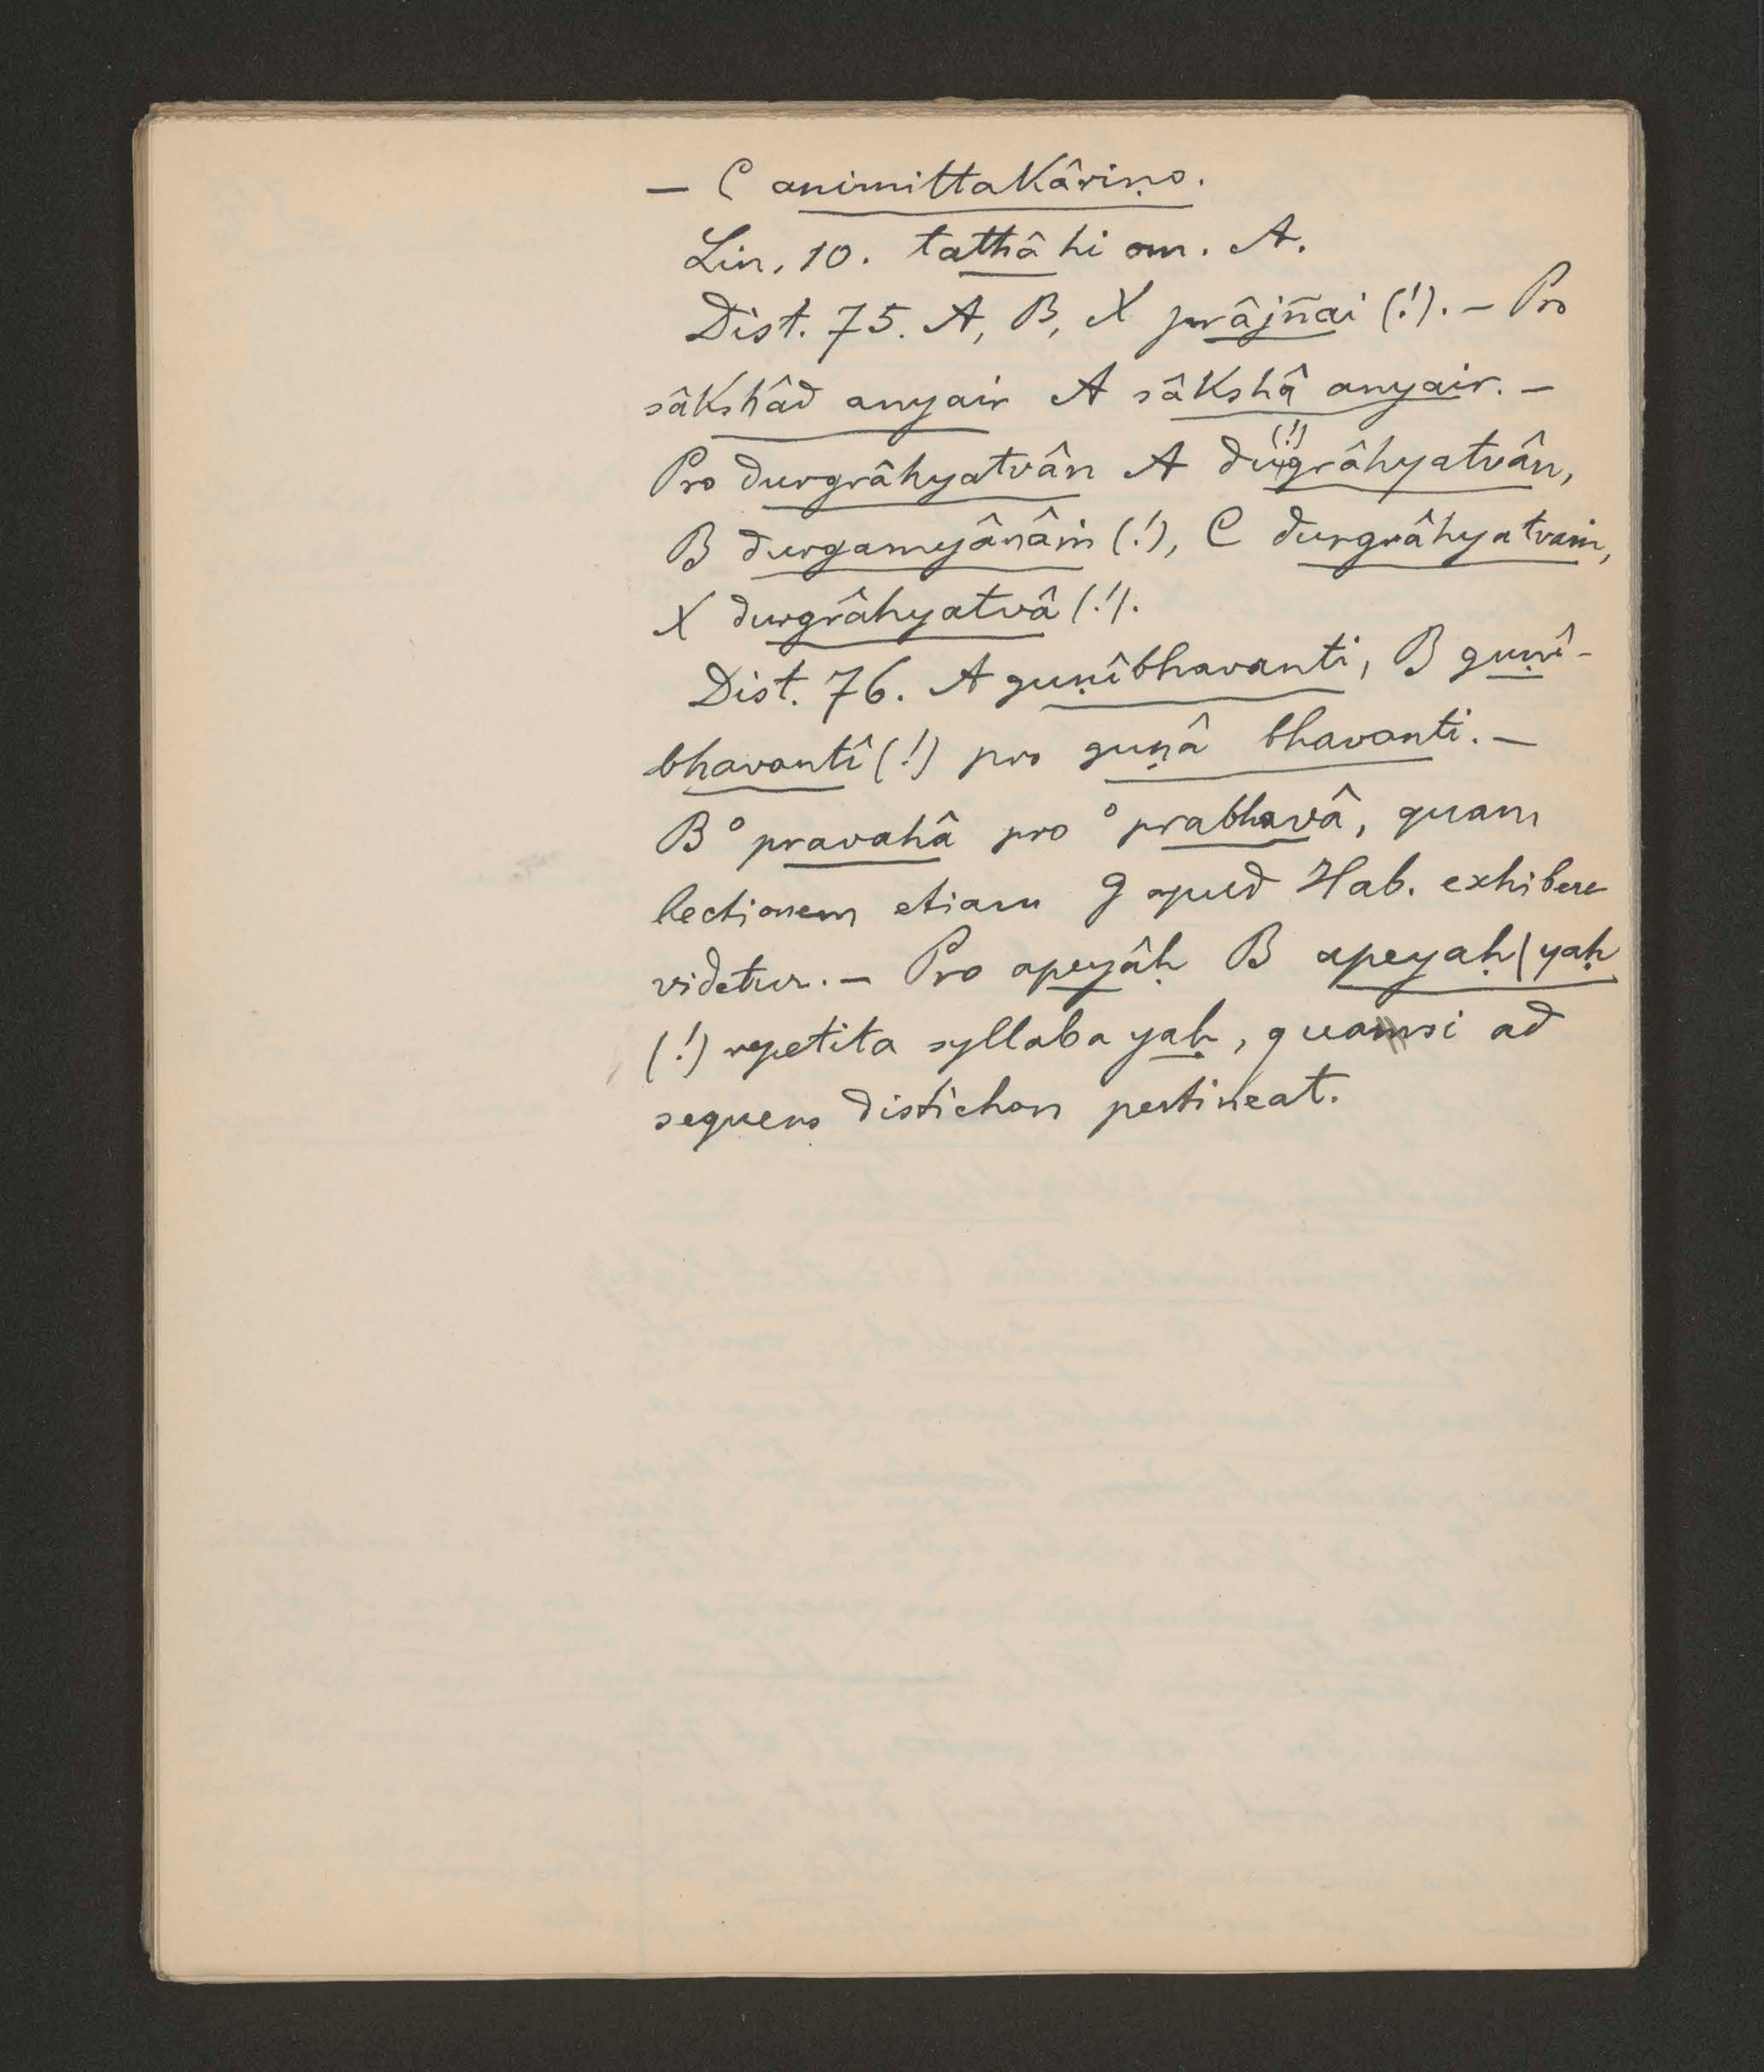 — C animittakâriṇo.
Lin. 10. tathâ hi om. A.
Dist. 75. A, B, X prâjñai (!). — Pro
sâkshâd anyair A sâkshâ anyair. —
Pro durgrâhyatvân A du(!)grâhyatvân,
B durgamyânâṁ (!), C durgrâhyatvaṁ,
X durgrâhyatvâ (!).
Dist. 76. A guṇîbhavanti, B guṇî-
bhavantî (!) pro guṇâ bhavanti. —
B °pravahâ pro °prabhavâ, quam
lectionem etiam g apud Hab. exhibere
videtur. — Pro apeyâḥ B apeyaḥ | yaḥ
(!) repetita syllaba yaḥ, quamsi ad
sequens distichon pertineat.